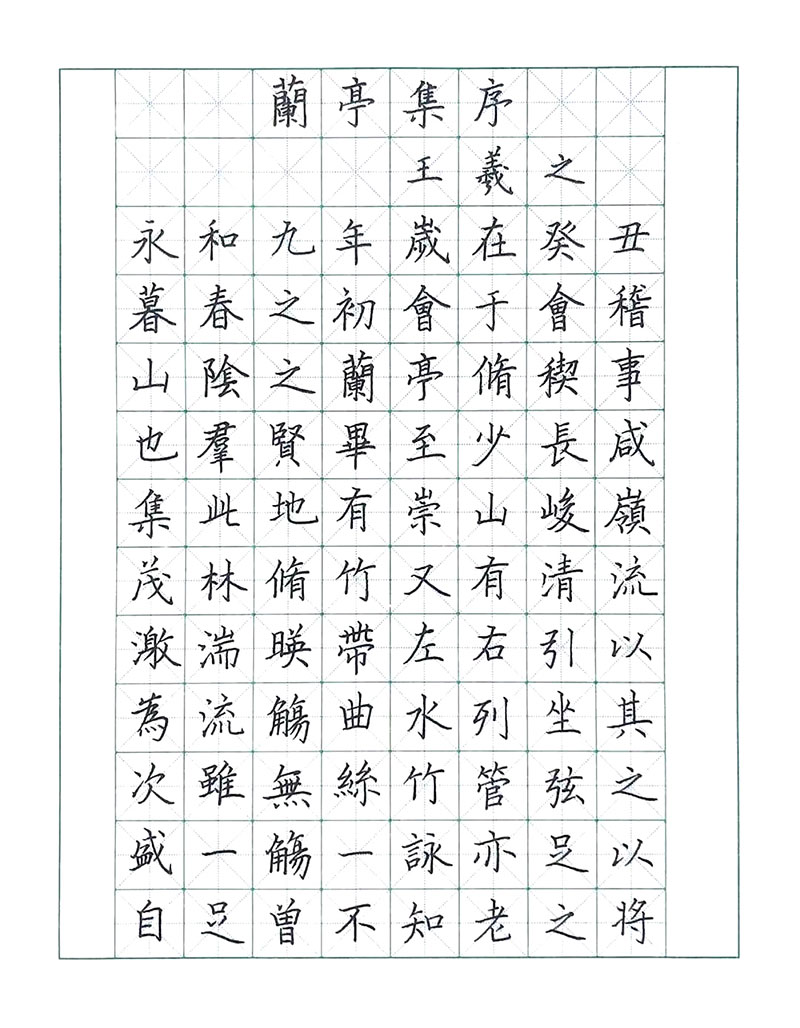 蘭亭集序
王羲之
永和九年歲在癸丑
暮春之初會于會稽
山陰之蘭亭脩稧事
也羣賢畢至少長咸
集此地有崇山峻嶺
茂林脩竹又有清流
激湍暎帶左右引以
為流觴曲水列坐其
次雖無絲竹管弦之
盛一觴一詠亦足以
自足曾不知老之将